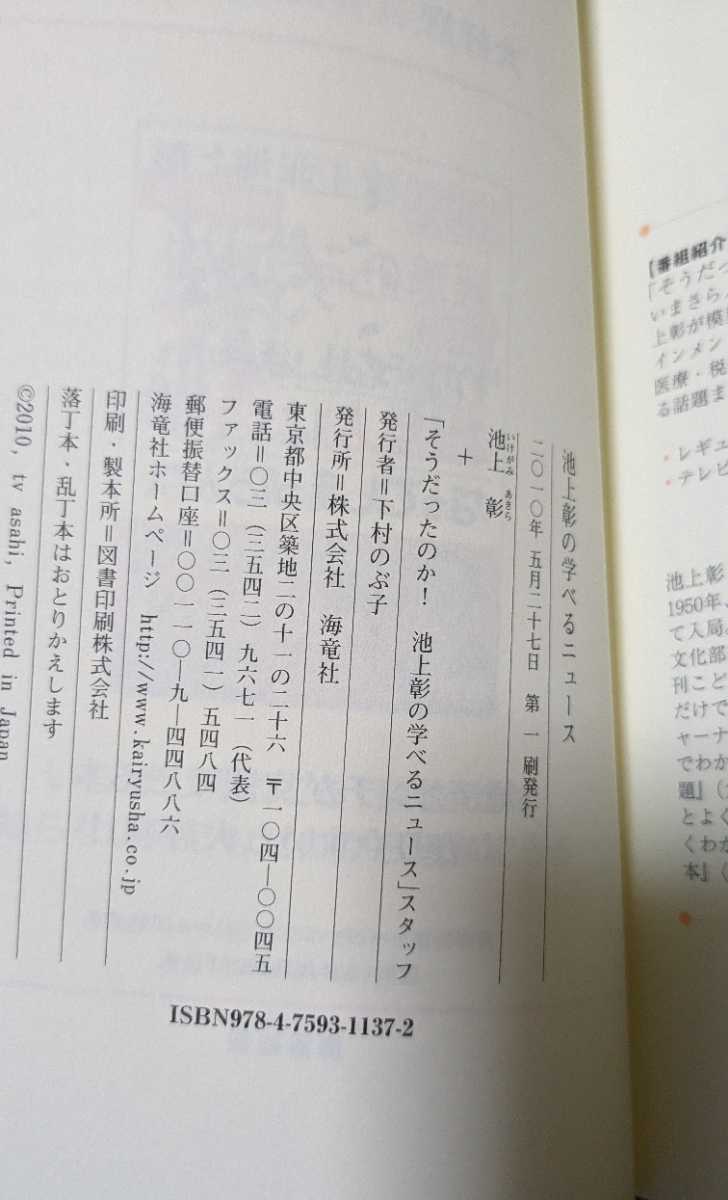 池上彰の学べるニュース
二〇一〇年 五月二十七日 第一刷発行
池上 彰
いけがみ あきら
+
「そうだったのか! 池上彰の学べるニュース」スタッフ
発行者=下村のぶ子
発行所=株式会社 海竜社
東京都中央区築地二の十一の二十六 〒一〇四―〇〇四五
電話=〇三(三五四二)九六七一(代表)
ファックス=〇三(三五四一)五四八四
郵便振替口座=〇〇一一〇―九―四四八八六
海竜社ホームページ http://www.kairyusha.co.jp
印刷・製本所=図書印刷株式会社
落丁本・乱丁本はおとりかえします
©2010, tv asahi, Printed in Japan
ISBN978-4-7593-1137-2
【番組紹介
「そうだっ
いまさら
上彰が模
インメン
医療・税
る話題ま
・レギュ
・テレビ
池上彰
1950年、
て入局。
文化部
刊こど
だけで
ャーナ
でわか
題』(
とよく
くわか
本』(